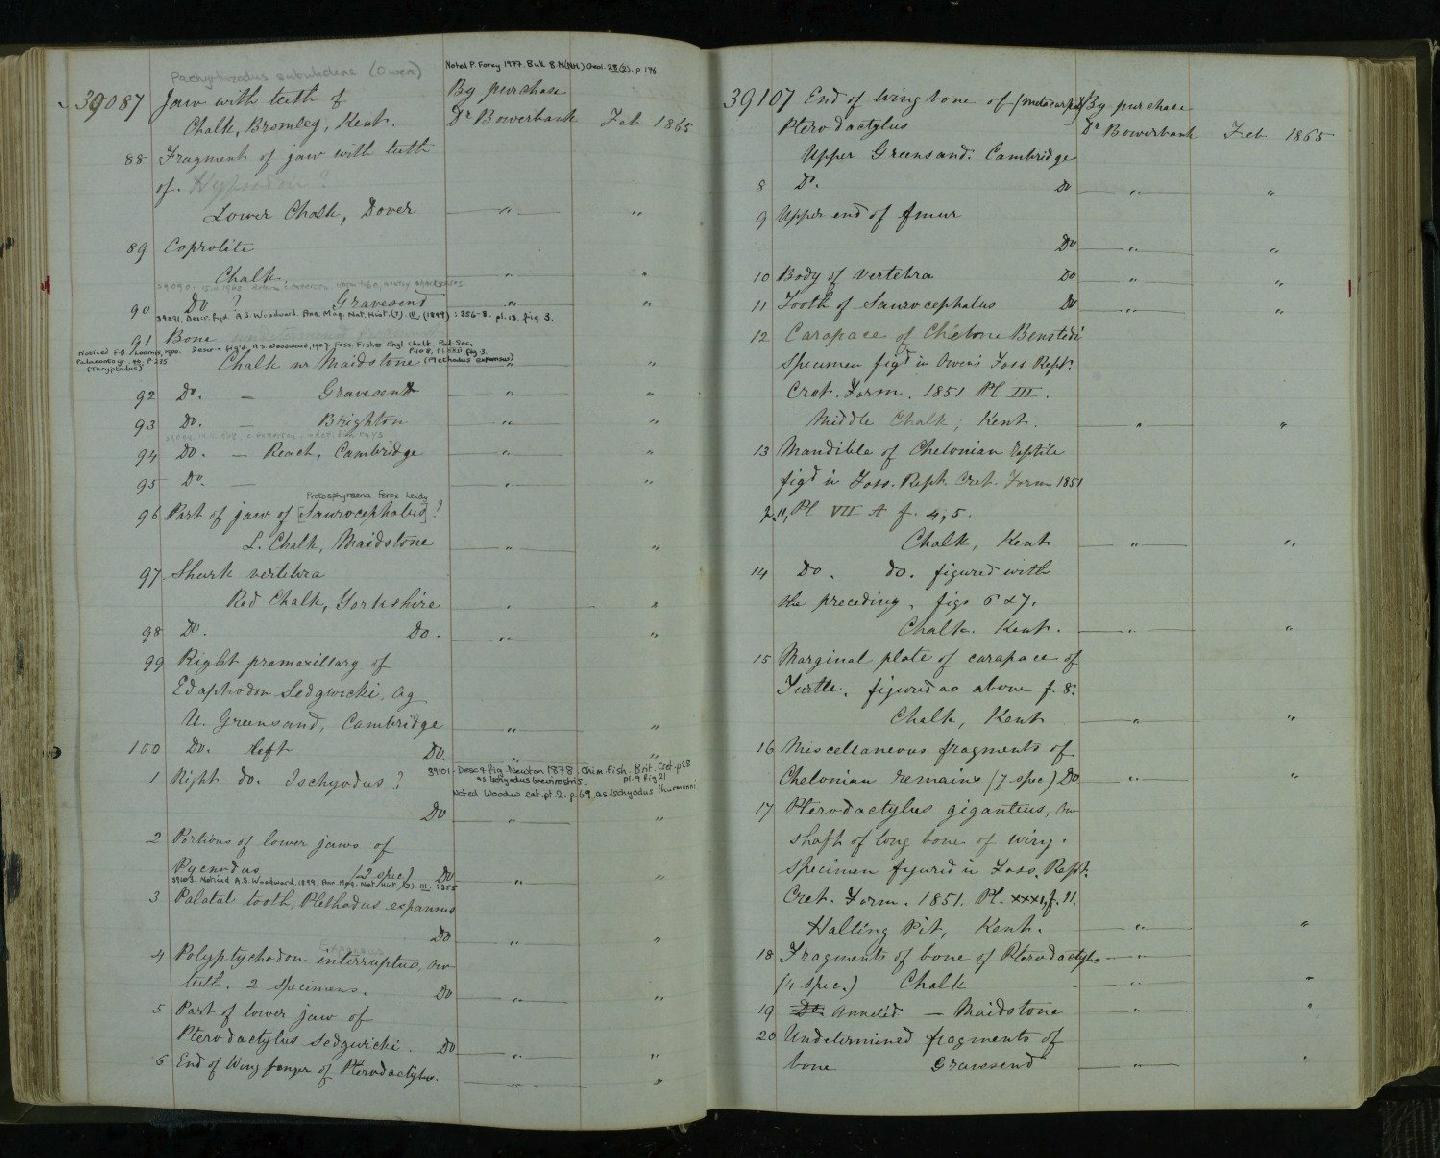 Pachyrhizodus subulidens (Owen)
Noted P. Forey 1977. Bull. B.M.(N.H.) Geol. 28(2). p 196
39087 Jaw with teeth of By purchase
Chalk, Bromley, Kent. Dr Bowerbank Feb 1865
88 Fragment of jaw with teeth
of. Hypsodon?
Lower Chalk, Dover " "
89 Coprolite
Chalk, " "
90 Do ? Gravesend " "
39091. Descr. figd. A.S. Woodward. Ann. Mag. Nat. Hist. (7). IV (1899) : 356-8. pl. 13. fig 3.
91 Bone
Chalk nr Maidstone (Plethodus expansus) " "
92 Do. — Gravesend " "
93 Do. — Brighton " "
94 Do. — Reach, Cambridge " "
95 Do. — " "
Protosphyraena ferox Leidy
96 Part of jaw of [Saurocephalus]?
L. Chalk, Maidstone " "
97 Shark vertebra
Red Chalk, Yorkshire " "
98 Do. Do. " "
99 Right premaxillary of
Edaphodon Sedgwicki, Ag
U. Greensand, Cambridge " "
100 Do. left Do. " "
39101. Desc & fig. Newton 1878. Chim. fish. Brit. Cret. p 28
as Ischyodus brevirostris. pl. 9 fig 21
1 Right do. Ischyodus?
Noted Woodw. cat. pt. 2. p. 69. as Ischyodus thurmanni
Do " "
2 Portions of lower jaws of
Pycnodus (2 spec) Do " "
39103. Noticed A.S. Woodward. 1899. Ann. Mag. Nat. Hist. (7). III. : 355
3 Palatal tooth, Plethodus expansus
Do " "
4 Polyptychodon interruptus, Ow
teeth. 2 specimens. Do " "
5 Part of lower jaw of
Pterodactylus Sedgwicki. Do " "
6 End of Wing finger of Pterodactylus. " "
39107 End of wing bone of (metacarpal) By purchase
Pterodactylus Dr Bowerbank Feb 1865
Upper Greensand. Cambridge
8 Do. Do " "
9 Upper end of femur
Do " "
10 Body of vertebra Do " "
11 Tooth of Saurocephalus Do " "
12 Carapace of Chelone Benstedi
specimen figd in Owen's Foss Rept.
Cret. Form. 1851 Pl III.
Middle Chalk, Kent. " "
13 Mandible of Chelonian reptile
figd in Foss. Rept. Cret. Form 1851
Pl VII A f. 4, 5.
Chalk, Kent " "
14 Do. do. figured with
the preceding, figs 6 & 7.
Chalk. Kent. " "
15 Marginal plate of carapace of
Turtle, figured as above f. 8.
Chalk, Kent " "
16 Miscellaneous fragments of
Chelonian remains (7 spec) Do " "
17 Pterodactylus giganteus, Ow
shaft of long bone of wing.
specimen figured in Foss. Rept.
Cret. Form. 1851. Pl. XXXI, f. 11.
Halling Pit, Kent. " "
18 Fragments of bone of Pterodactyle "
(4 spec.) Chalk " "
19 Do. — Maidstone " "
20 Undetermined fragments of
bone Gravesend " "